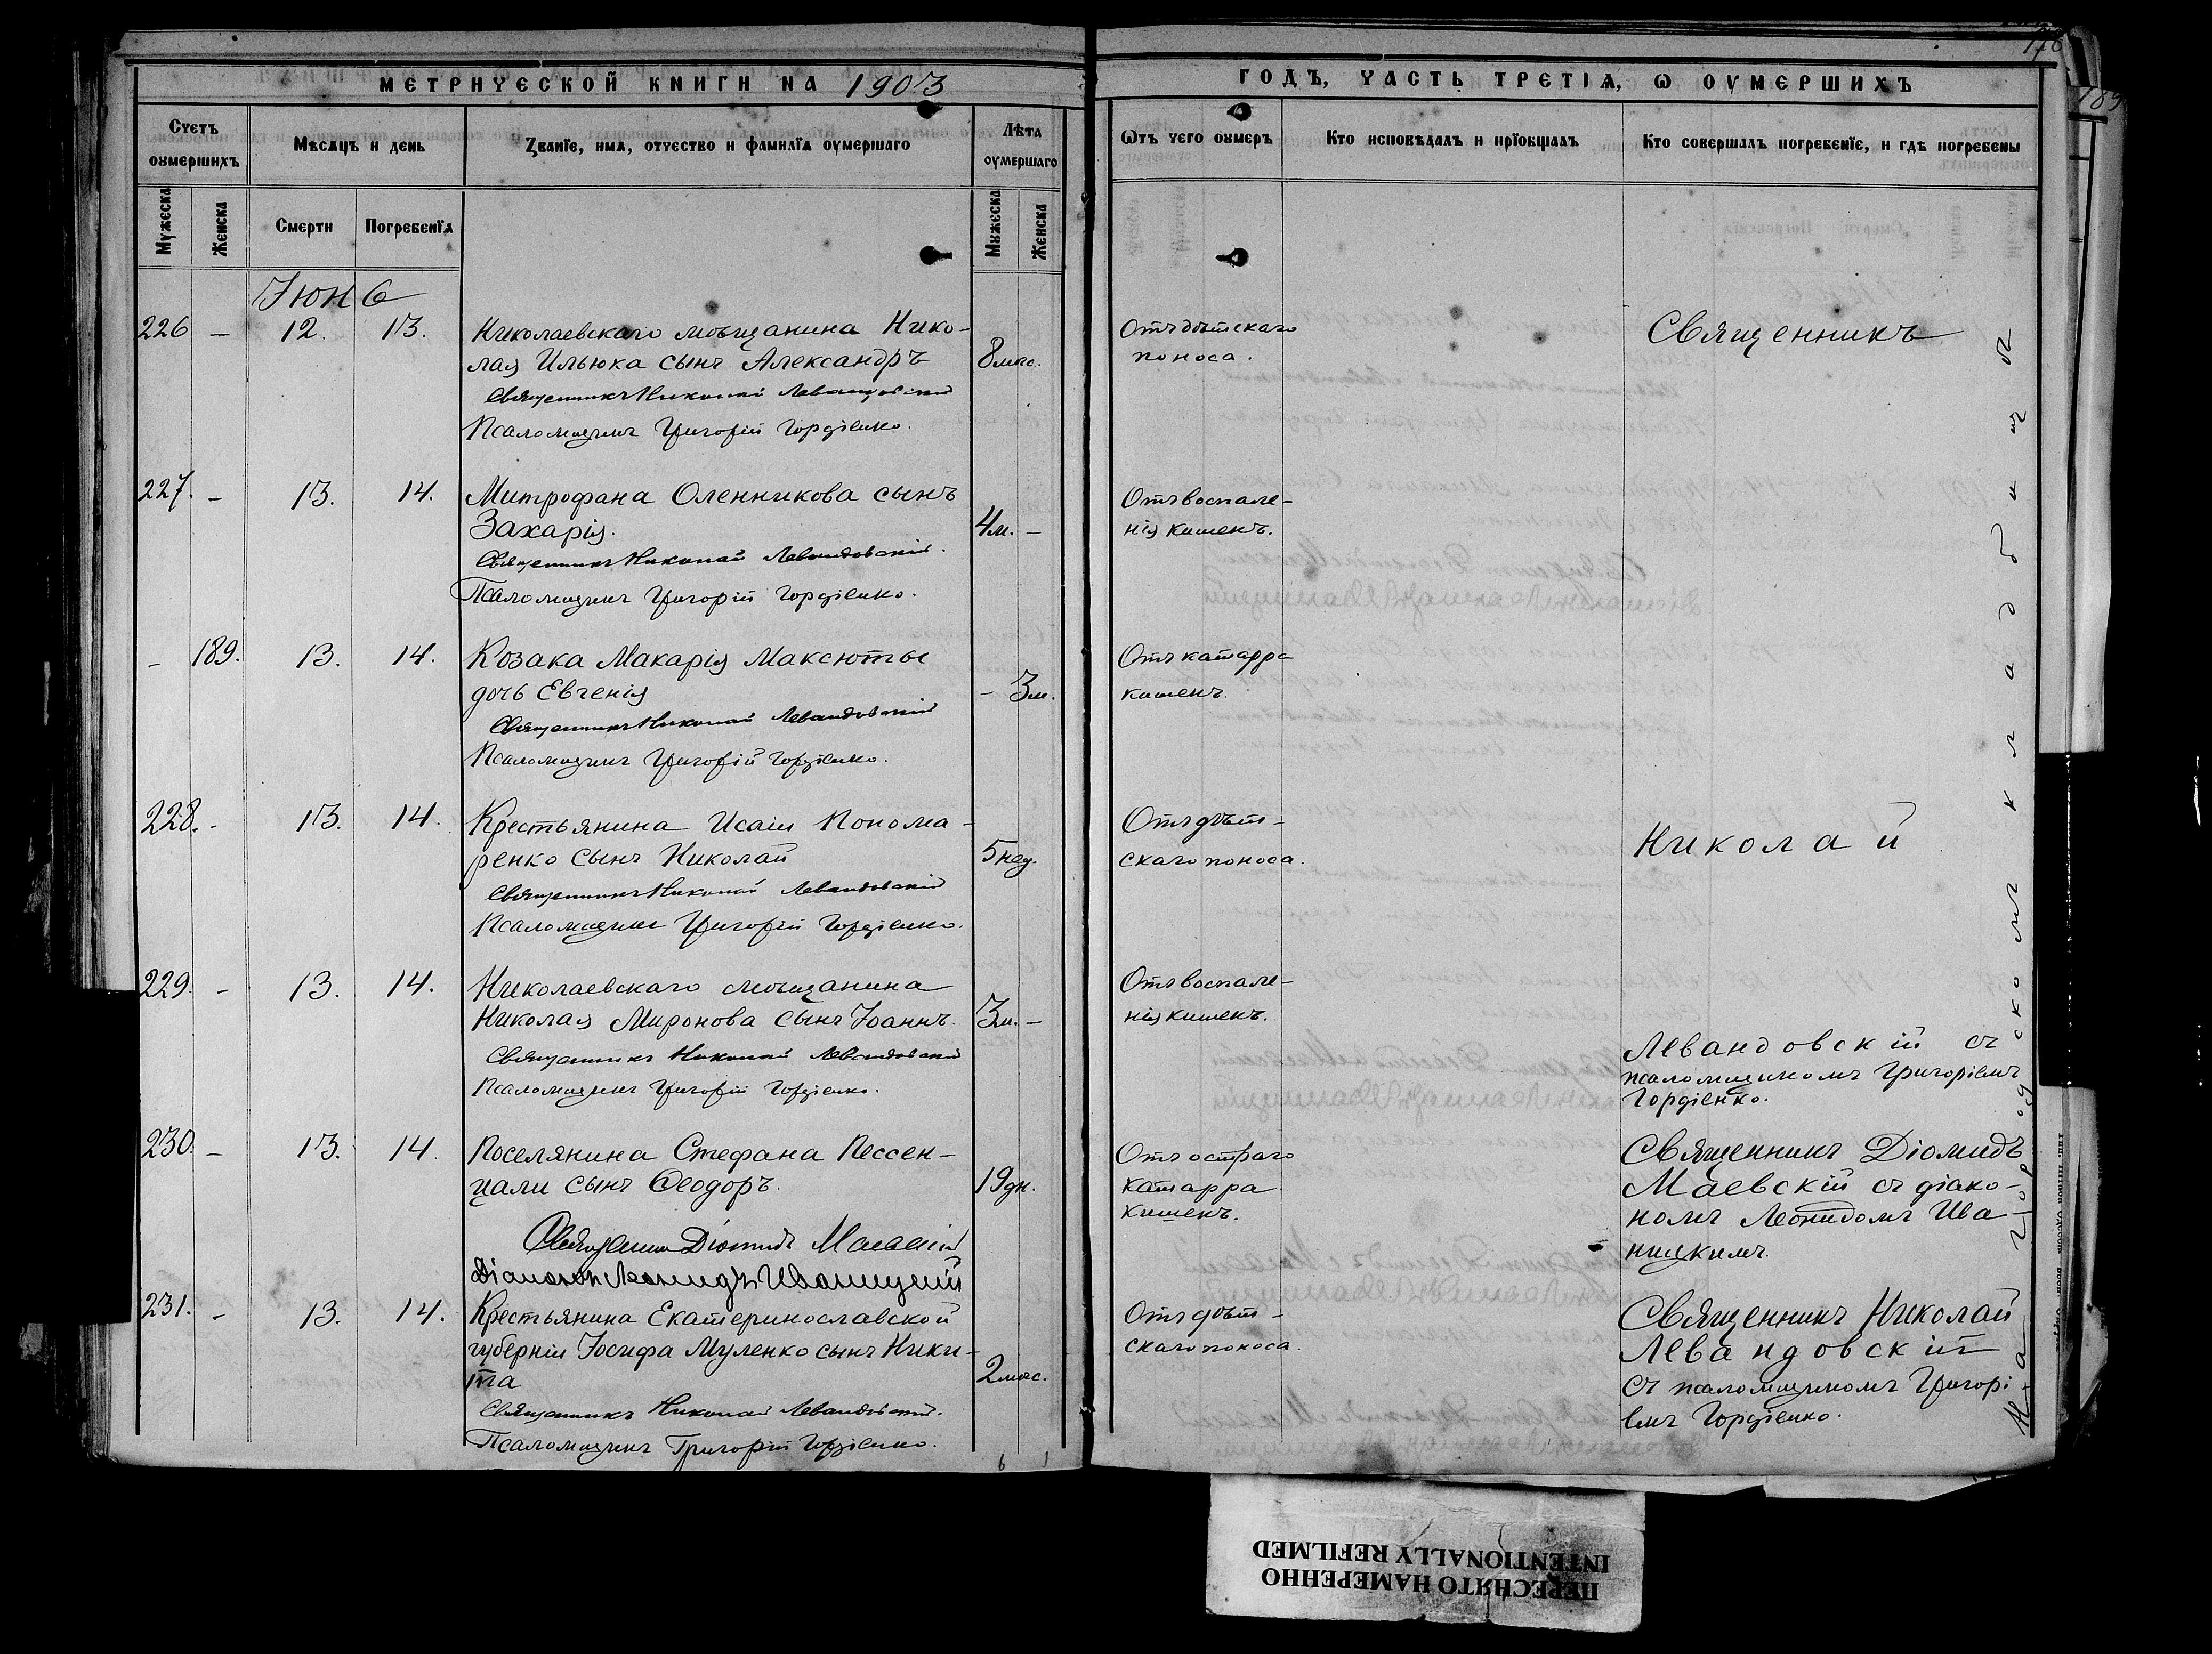 МЕТРИЧЕСКОЙ КНИГИ НА 1903
ГОДЪ, ЧАСТЬ ТРЕТІѦ, Ѡ ОУМЕРШИХЪ
178
189
Счетъ оумершихъ
Мѣсѧцъ и день
Званїе, имѧ, отчество и фамилїѧ оумершаго
Лѣта оумершаго
Ѿтъ чего оумеръ
Кто исповѣдалъ и прїобщалъ
Кто совершалъ погребенїе, и гдѣ погребены
Мужеска
Женска
Смерти
Погребенїѧ
Мужеска
Женска
Іюнь
226 – 12. 13. Николаевскаго мѣщанина Нико-
лая Ильюка сынъ Александръ 8 мѣс.
Отъ дѣтскаго
поноса.
Священникъ Николай Левандовскій
Псаломщикъ Григорій Гордіенко.
227. – 13. 14. Митрофана Оленникова сынъ
Захарія. 4 м. –
Отъ воспале-
нія кишекъ.
Священникъ Николай Левандовскій.
Псаломщикъ Григорій Гордіенко.
– 189. 13. 14. Козака Макарія Максюты
дочь Евгенія – 3 м.
Отъ катарра
кишекъ.
Священникъ Николай Левандовскій
Псаломщикъ Григорій Гордіенко.
228. - 13. 14. Крестьянина Исаіи Понома-
ренко сынъ Николай 5 нед.
Отъ дѣт-
скаго поноса.
Священникъ Николай Левандовскій
Псаломщикъ Григорій Гордіенко.
229. - 13. 14. Николаевскаго мѣщанина
Николая Миронова сынъ Іоаннъ. 3 м. –
Отъ воспале-
нія кишекъ.
Священникъ Николай Левандовскій
Псаломщикъ Григорій Гордіенко.
230. – 13. 14. Поселянина Стефана Пессен-
цали сынъ Ѳеодоръ. 19 дн.
Отъ остраго
катарра
кишекъ.
Священникъ Діомидъ Маевскій
Діаконъ Леонидъ Иваницкій
231. - 13. 14. Крестьянина Екатеринославской
губерніи Іосифа Муленко сынъ Ники-
та 2 мѣс.
Отъ дѣт-
скаго поноса.
Священникъ Николай Левандовскій.
Псаломщикъ Григорій Гордіенко.
6 1
Священникъ
Николай
Левандовскій съ
псаломщикомъ Григоріемъ
Гордіенко.
Священникъ Діомидъ
Маевскій съ діако-
номъ Леонидомъ Ива-
ницкимъ.
Священникъ Николай
Левандовскій
съ псаломщикомъ Григорі-
емъ Гордіенко.
На городскомъ кладбищѣ
ПЕРЕСНЯТО НАМЕРЕННО
INTENTIONALLY REFILMED